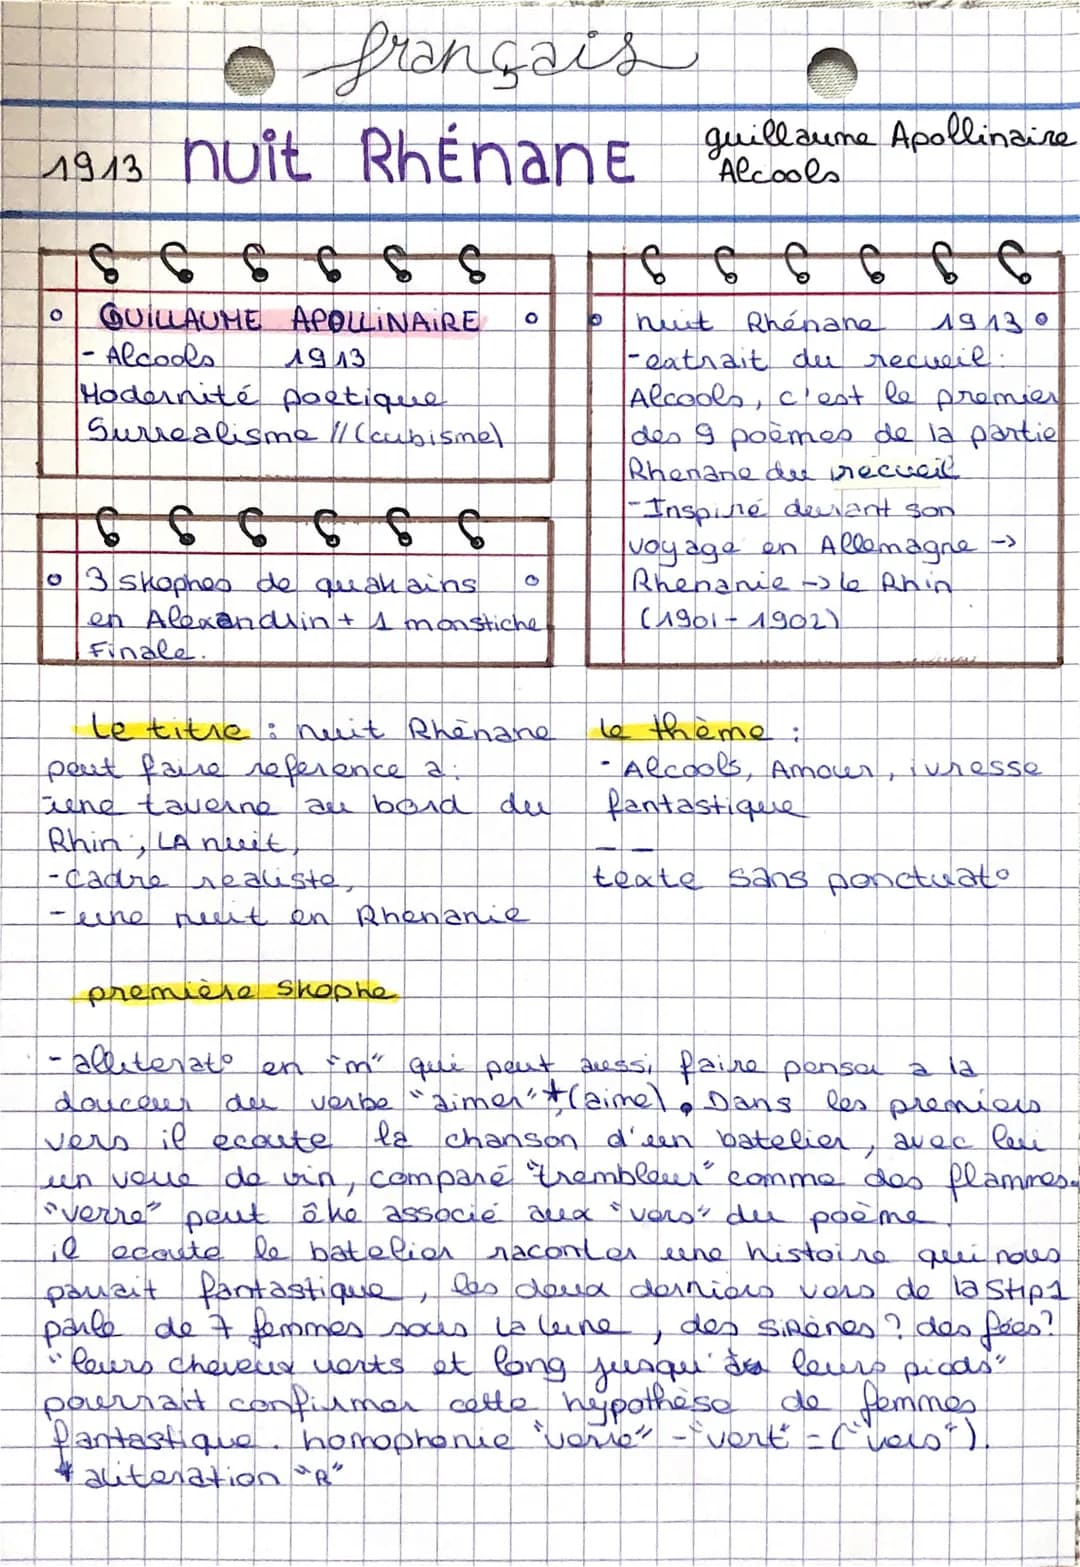 français
1913 nuit RhÉnanE
guillaume Apollinaire
Alcools
GUILLAUME APOLLINAIRE
- Alcools 1913
Modernité poetique
Surrealisme // (cubisme)
3 strophes de quatrains
en Alexandrin + 1 monstiche
Finale.
nuit Rhénane 1913
- extrait du recueil :
Alcools, c'est le premier
des 9 poèmes de la partie
Rhenane du recueil
- Inspiré devant son
voyage en Allemagne ->
Rhenanie -> le Rhin
(1901 - 1902)
Le titre : nuit Rhénane
peut faire reference a :
une taverne au bord du
Rhin, LA nuit,
- Cadre realiste,
- une nuit en Rhenanie
le thème :
- Alcools, Amour, ivresse
fantastique
texte sans ponctuat°
première strophe
- alliterat° en "m" qui peut aussi faire penser a la
douceur du verbe "aimer"* (aime). Dans les premiers
vers il ecoute la chanson d'un batelier, avec lui
un verre de vin, comparé "trembleur" comme des flammes.
"verre" peut être associé aux "vers" du poème.
il ecoute le batelier raconter une histoire qui nous
parait fantastique, les deux derniers vers de la Strp1
parle de 7 femmes sous la lune, des sirènes ? des fées ?
"leurs cheveux verts et long jusqu'à leurs pieds"
pourrait confirmer cette hypothèse de femmes
fantastique. homophonie "verre" - "vert" = ("vers").
* aliteration "R"